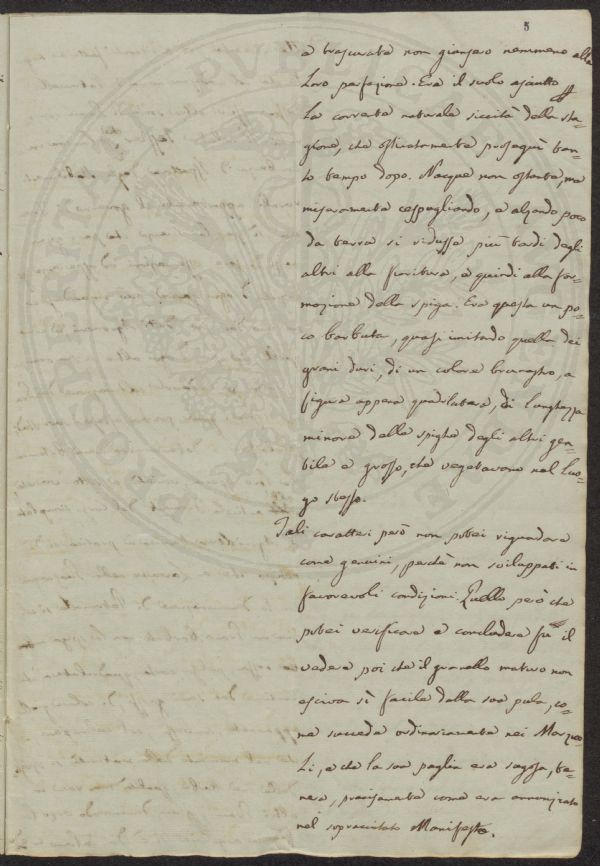 5
e trascurate non giunsero nemmeno alla
loro perfezione. Era il suolo asciutto
la corrente naturale siccità della sta=
gione, che ostinatamente proseguì tan=
to tempo dopo. Nacque non ostante, ma
miseramente cespugliando, e alzando poco
da terra si ridusse più tardi degli
altri alla fioritura, e quindi alla for=
mazione della spiga. Era questa un po=
co barbuta, quasi imitando quella dei
grani duri, di un colore brunastro, a
figura appena quadrilatera, di lunghezza
minore delle spighe degli altri gen=
tile e grosso, che vegetavano nel luo=
go stesso.
Tali caratteri però non potei riguardare
come genuini, perchè non sviluppati in
favorevoli condizioni. Quello però che
potei verificare e concludere fù il
vedere poi che il granello maturo non
esciva sì facile dalla sua pula, co=
me succede ordinariamente nei
li, e che la sua paglia era te=
nera, precisamente come era annunziato
nel sopraccitato Manifesto.